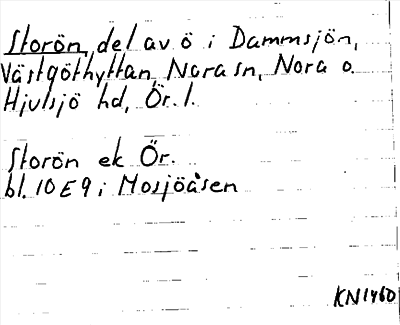 Storön, del av ö i Dammsjön,
Västgöthyttan, Nora sn, Nora o.
Hjulsjö hd, Ör. l.
Storön ek Ör.
bl. 10 E 9 i Mosjöåsen
KN1460